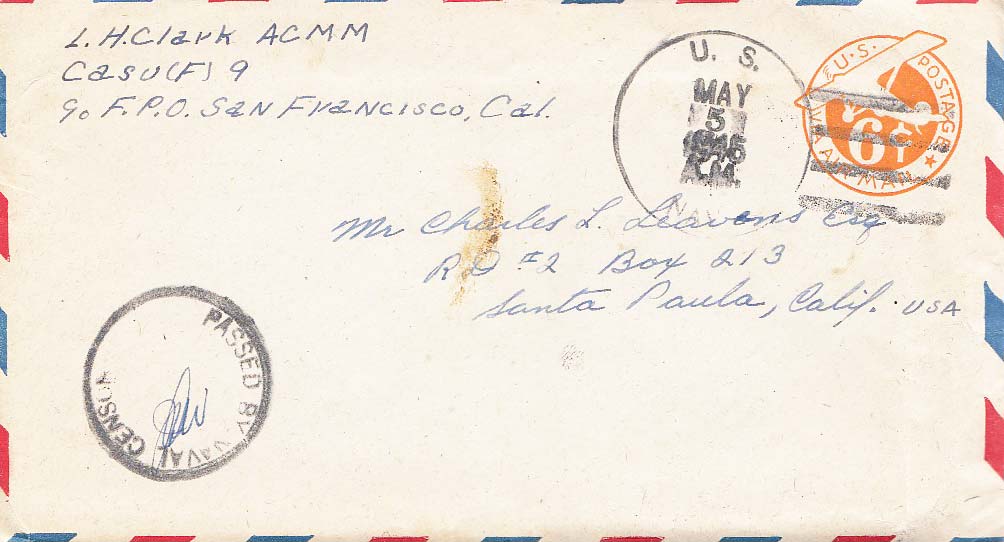 L. H. Clark ACMM
Casu(F) 9
c/o F.P.O. San Francisco, Cal.
U. S.
MAY
5
1945
A.M.
NAVY
U.S. POSTAGE
6¢
VIA AIR MAIL
Mr Charles L. Leavens Esq
R D #2 Box 213
Santa Paula, Calif. USA
PASSED BY NAVAL CENSOR